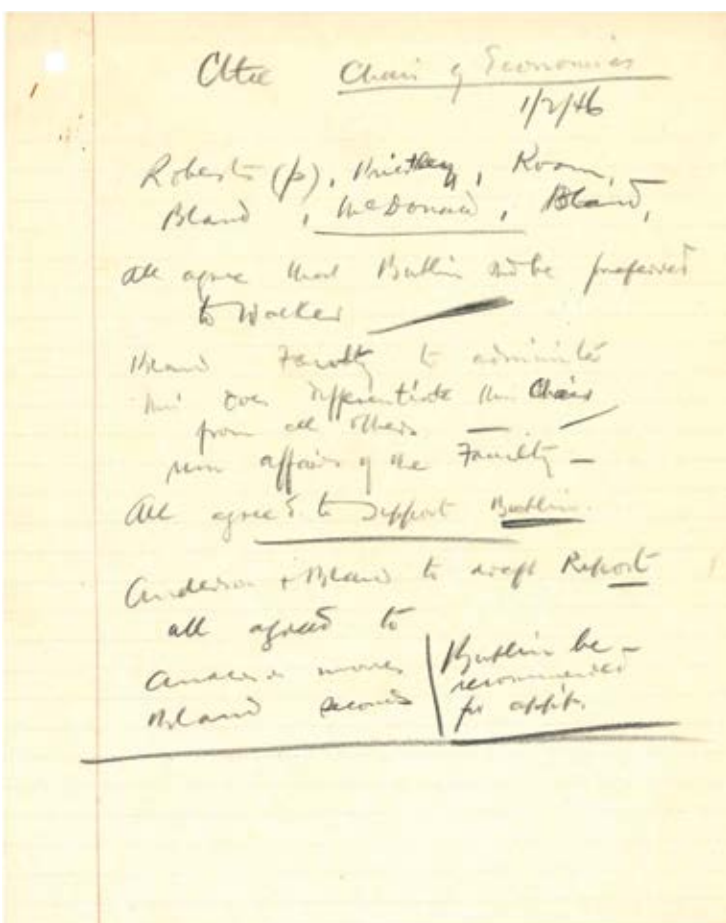 Cttee Chair of Economics
1/2/46
Roberts (p), Priestley, Room,
Bland, McDonald, Bland,
all agree that Butlin shd be preferred
to Walker
Bland Faculty to administer
this does differentiate this Chair
from all others —
run affairs of the Faculty —
All agreed to support Butlin.
Anderson + Bland to draft Report
all agreed to
Anderson moves
Bland seconds
Butlin be
recommended
for appt.